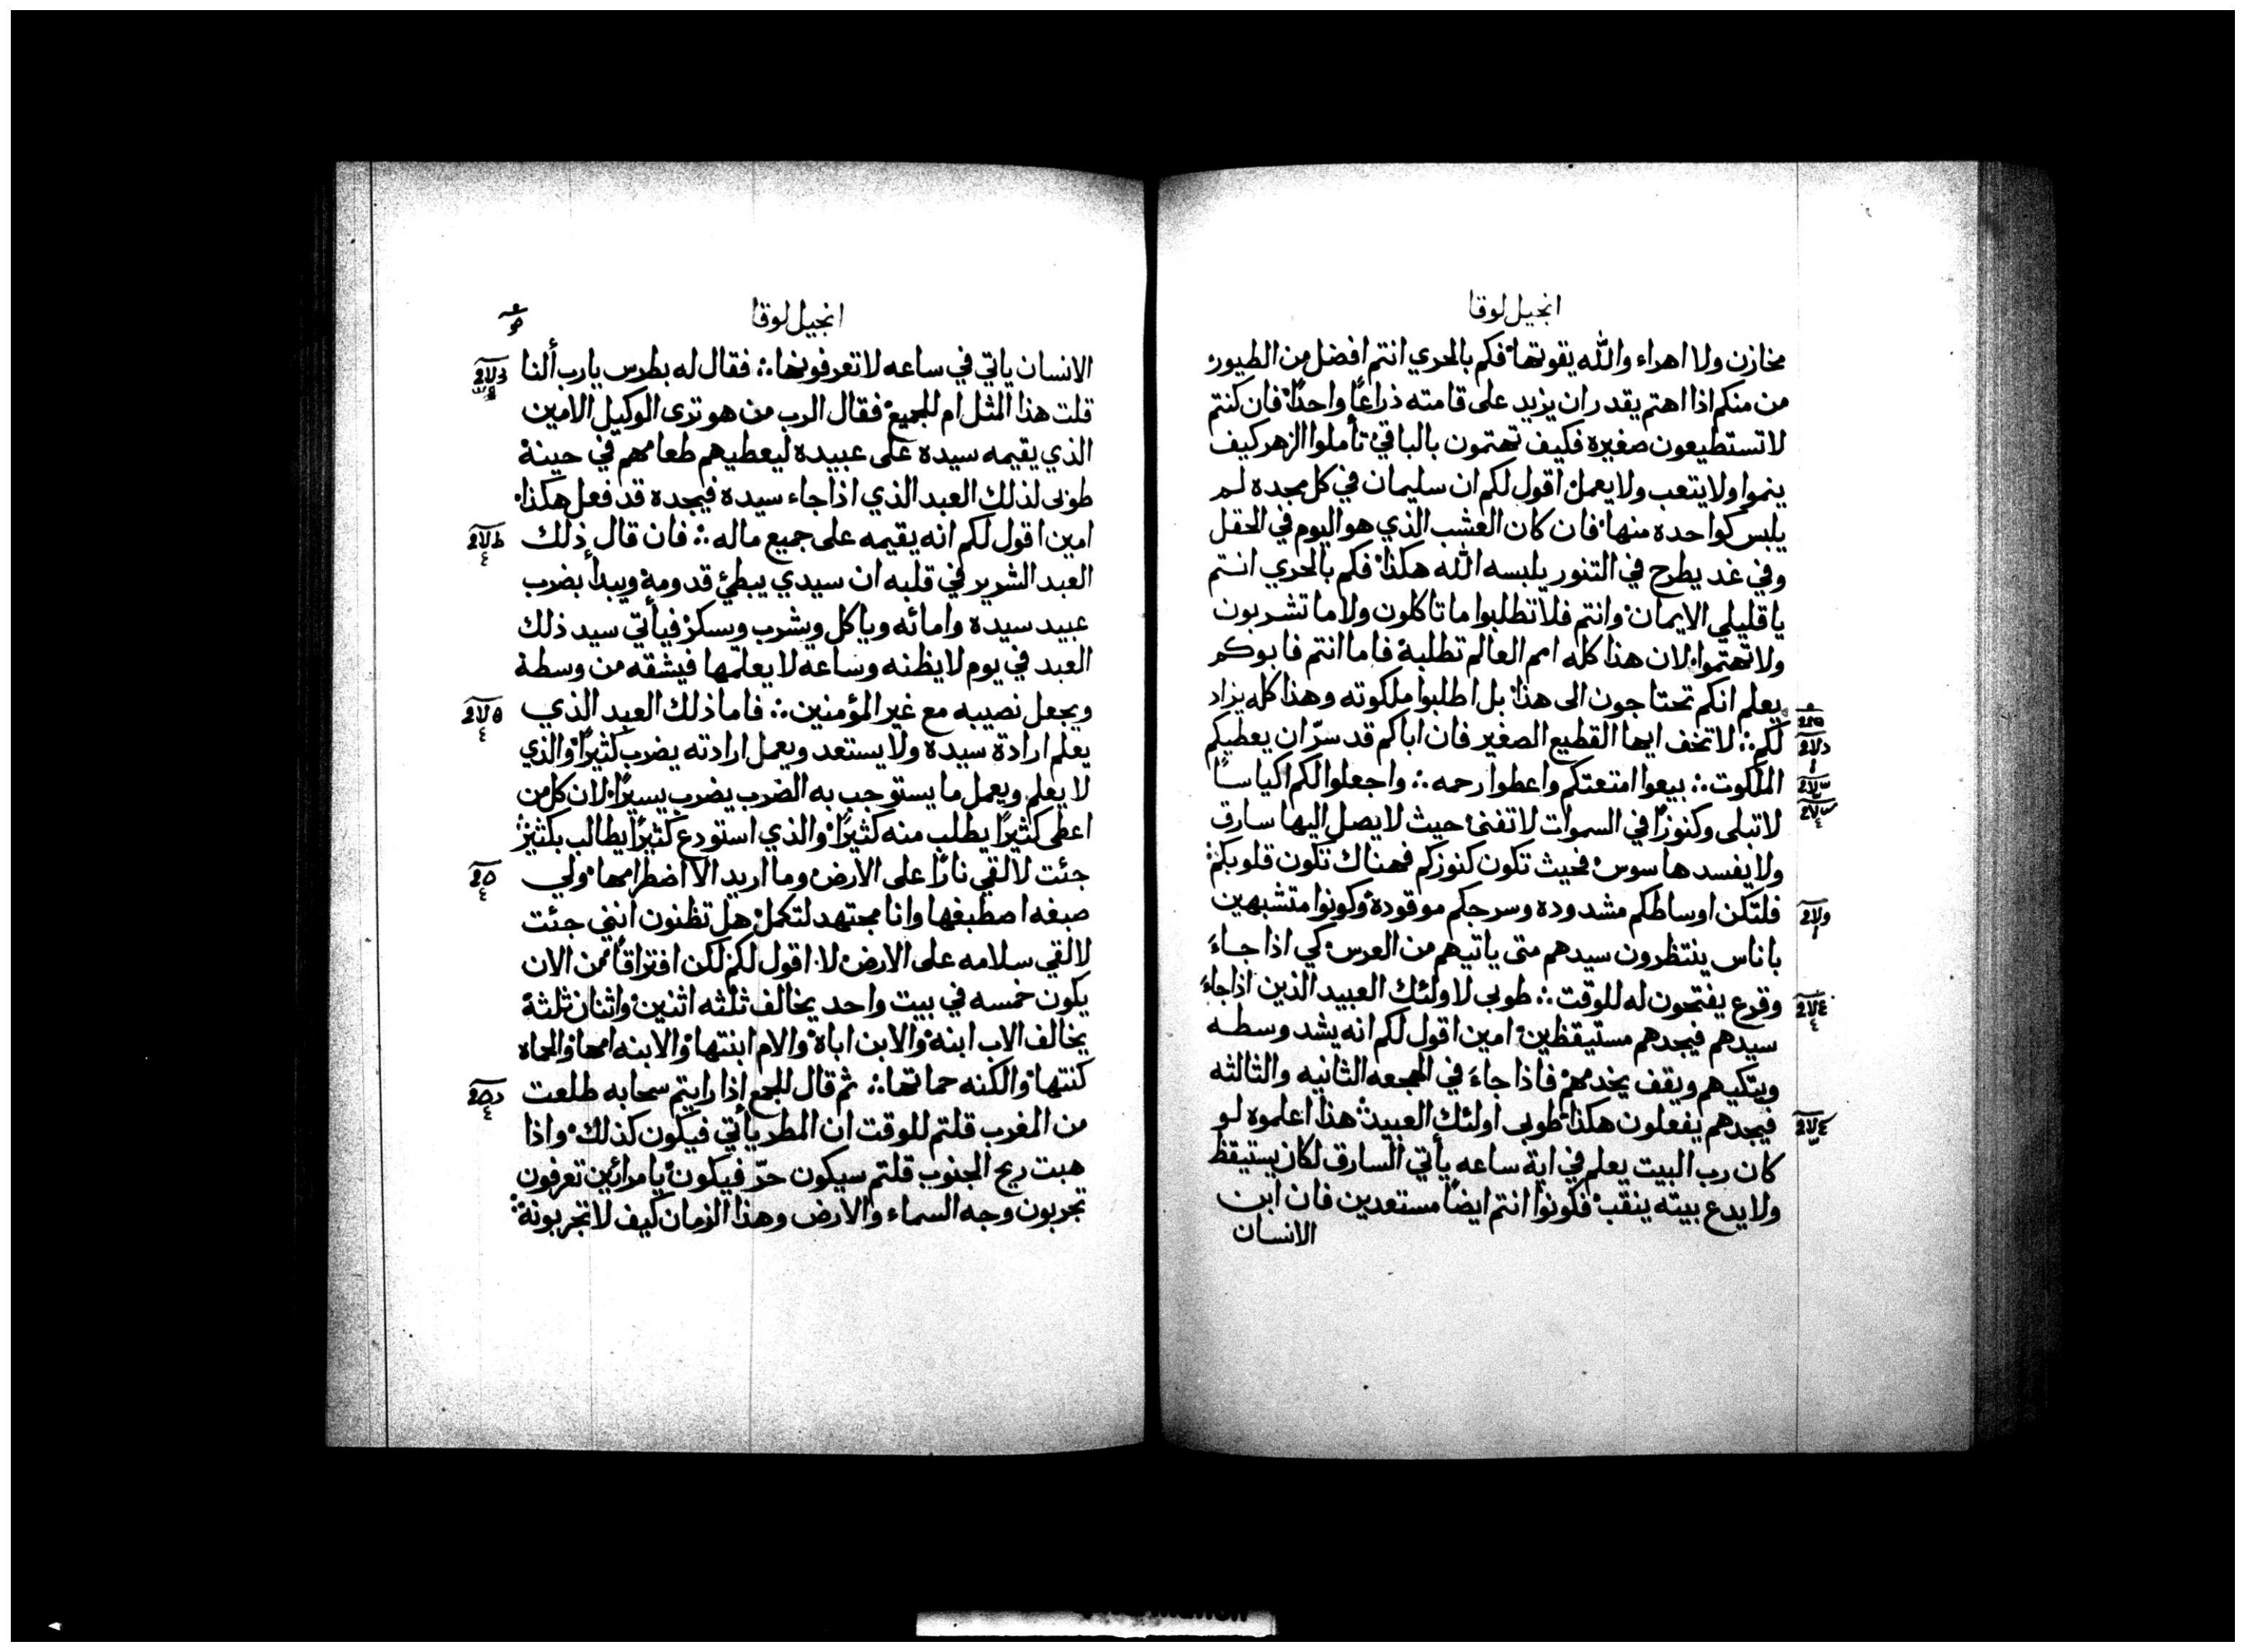 انجيل لوقا
مخازن ولا اهراء والله يقوتها فكم بالحري انتم افضل من الطيور
من منكم اذا اهتم يقدر ان يزيد على قامته ذراعًا واحدًا فان كنتم
لا تستطيعون صغيره فكيف تهتمون بالباقي تأملوا الزهر كيف
ينموا ولا يتعب ولا يعمل اقول لكم ان سليمان في كل مجده لم
يلبس كواحده منها فان كان العشب الذي هو اليوم في الحقل
وفي غد يطرح في التنور يلبسه الله هكذا فكم بالحري انتم
يا قليلي الايمان وانتم فلا تطلبوا ما تاكلون ولا ما تشربون
ولا تهتموا لان هذا كله امم العالم تطلبه فاما انتم فابوكم
يعلم انكم تحتاجون الى هذا بل اطلبوا ملكوته وهذا كله يزاد
لكم ؞ لا تخف ايها القطيع الصغير فان اباكم قد سرّ ان يعطيكم
الملكوت ؞ بيعوا امتعتكم واعطوا رحمه ؞ واجعلوا لكم اكياسًا
لا تبلى وكنوزًا في السموات لا تفنى حيث لا يصل اليها سارق
ولا يفسدها سوس فحيث تكون كنوزكم فهناك تكون قلوبكم ؞
فلتكن اوساطكم مشدوده وسرجكم موقودة وكونوا متشبهين
باناس ينتظرون سيدهم متى ياتيهم من العرس كي اذا جاءَ
وقرع يفتحون له للوقت ؞ طوبى لاولئك العبيد الذين اذا جاءَ
سيدهم فيجدهم مستيقظين امين اقول لكم انه يشد وسطه
ويتكيهم ويقف يخدمهم فاذا جاءَ في الهجعه الثانيه والثالثه
فيجدهم يفعلون هكذا طوبى اولئك العبيد هذا اعلموه لو
كان رب البيت يعلم في اية ساعه يأتي السارق لكان يستيقظ
ولا يدع بيته ينقب فكونوا انتم ايضًا مستعدين فان ابن
الانسان
انجيل لوقا
الانسان ياتي في ساعه لا تعرفونها ؞ فقال له بطرس يارب ألنا
قلت هذا المثل ام للجميع فقال الرب من هو ترى الوكيل الامين
الذي يقيمه سيده على عبيده ليعطيهم طعامهم في حينه
طوبى لذلك العبد الذي اذا جاء سيده فيجده قد فعل هكذا
امين اقول لكم انه يقيمه على جميع ماله ؞ فان قال ذلك
العبد الشرير في قلبه ان سيدي يبطئ قدومه ويبدأ بضرب
عبيد سيده وامائه وياكل ويشرب ويسكر فيأتي سيد ذلك
العبد في يوم لا يظنه وساعه لا يعلمها فيشقه من وسطه
ويجعل نصيبه مع غير المؤمنين ؞ فاما ذلك العبد الذي
يعلم ارادة سيده ولا يستعد ويعمل ارادته يضرب كثيرًا والذي
لا يعلم ويعمل ما يستوجب به الضرب يضرب يسيرًا لان كل من
اعطى كثيرًا يطلب منه كثيرًا والذي استودع كثيرًا يطالب بكثير ؞
جئت لالقي نارًا على الارض وما اريد الا اضطرامها ولي
صبغه اصطبغها وانا مجتهد لتكمل هل تظنون انني جئت
لالقي سلامه على الارض لا اقول لكم لكن افتراقًا من الان
يكون خمسه في بيت واحد يخالف ثلثه اثنين واثنان ثلثة
يخالف الاب ابنه والابن اباه والام ابنتها والابنه امها والحماه
كنتها والكنه حماتها ؞ ثم قال للجمع اذا رايتم سحابه طلعت
من المغرب قلتم للوقت ان المطر يأتي فيكون كذلك واذا
هبت ريح الجنوب قلتم سيكون حرّ فيكون يا مرائين تعرفون
تجربون وجه السماء والارض وهذا الزمان كيف لا تجربونه ؞